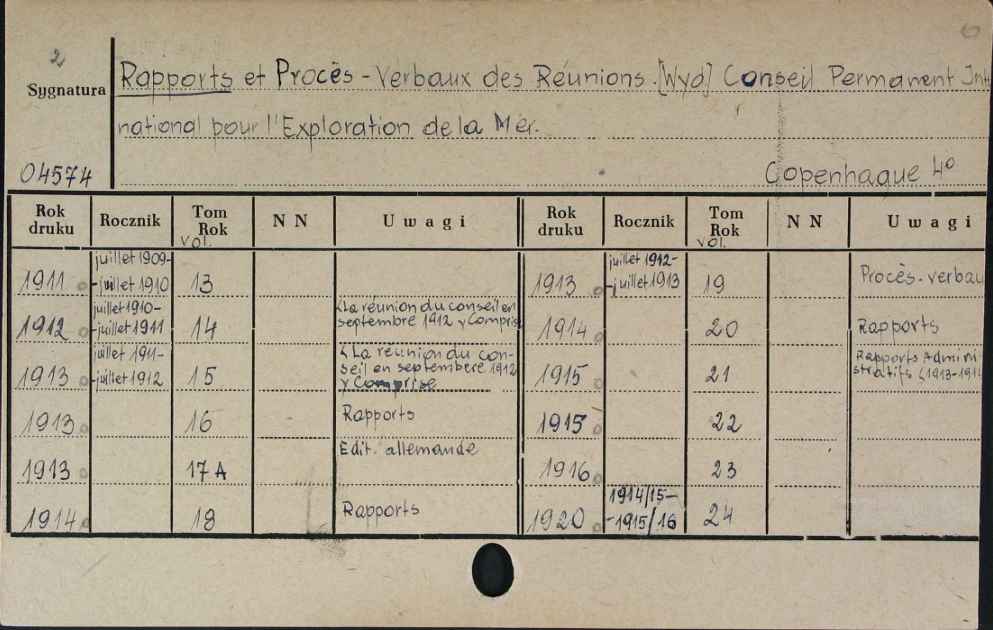 2
Sygnatura
04574
Rapports et Procès-Verbaux des Réunions. [Wyd] Conseil Permanent Int
national pour l'Exploration de la Mer.
Copenhague 4°
Rok druku Rocznik Tom Rok Vol. NN Uwagi Rok druku Rocznik Tom Rok Vol. NN Uwagi
1911 juillet 1909- -juillet 1910 13
1912 juillet 1910- -juillet 1911 14 <La réunion du conseil en septembre 1912 y Compris
1913 juillet 1911- -juillet 1912 15 <La réunion du con- seil en septembere 1912 y Comprise
1913 16 Rapports
1913 17 A Edit. allemande
1914 18 Rapports
1913 juillet 1912- -juillet 1913 19 Procès-verbau
1914 20 Rapports
1915 21 Rapports Admini stratifs (1913-191
1915 22
1916 23
1920 1914/15- -1915/16 24